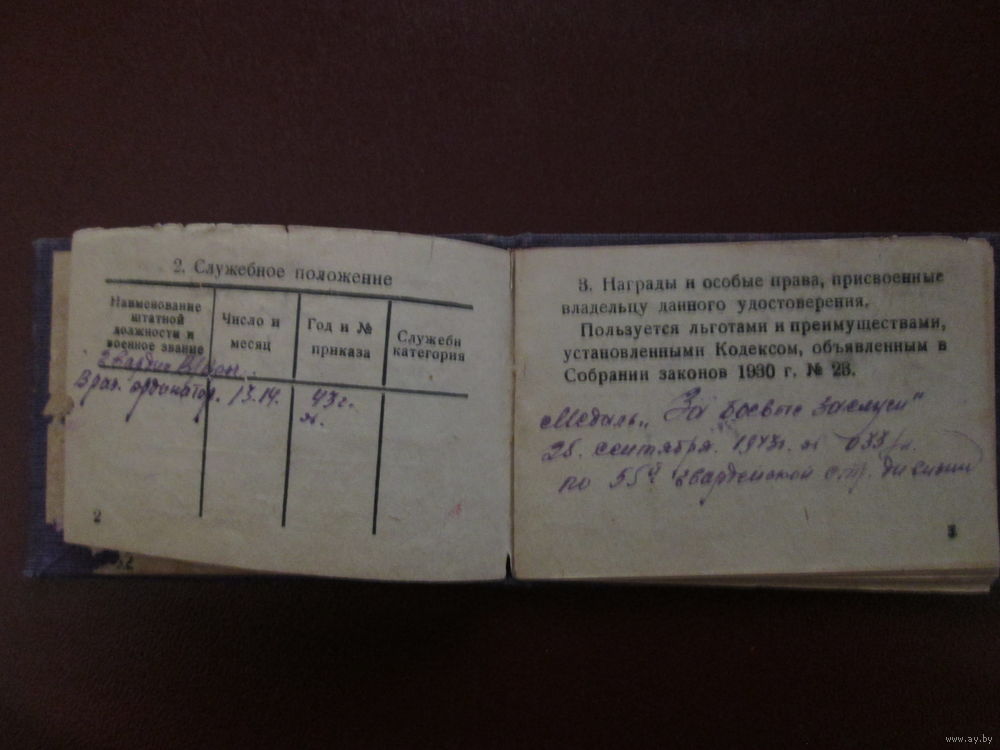 2. Служебное положение
Наименование штатной должности и военное звание
Число и месяц
Год и № приказа
Служебн категория
Врач. ординатор. 13.14. 43 г.
№.
2
3. Награды и особые права, присвоенные
владельцу данного удостоверения.
Пользуется льготами и преимуществами,
установленными Кодексом, объявленным в
Собрании законов 1930 г. № 23.
Медаль „За боевые заслуги"
сентября. 1943г. № 033/н.
по 55й гвардейской стр. дивизии
3
52
www.ay.by